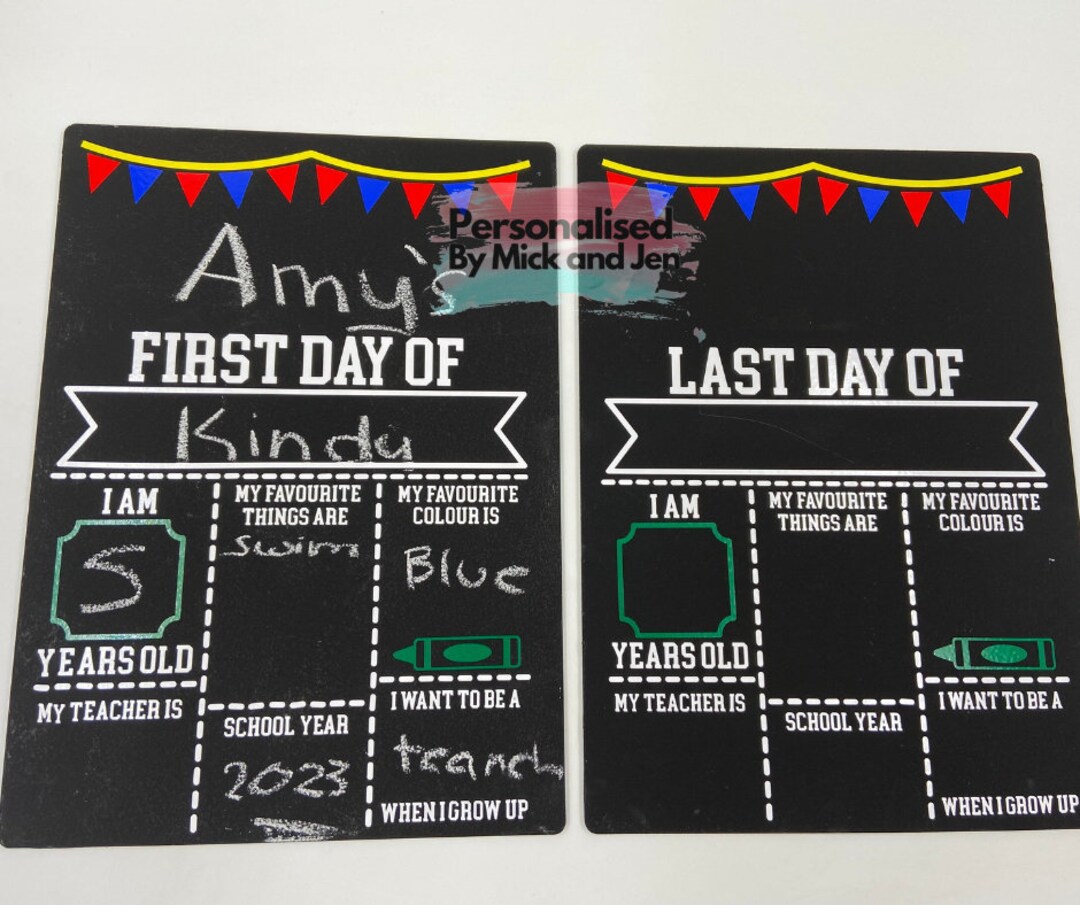 Personalised
By Mick and Jen
Amy's
FIRST DAY OF
Kinda
I AM
5
YEARS OLD
MY FAVOURITE
THINGS ARE
swim
MY FAVOURITE
COLOUR IS
Blue
MY TEACHER IS
SCHOOL YEAR
2023
I WANT TO BE A
WHEN I GROW UP
LAST DAY OF
I AM
YEARS OLD
MY FAVOURITE
THINGS ARE
MY FAVOURITE
COLOUR IS
MY TEACHER IS
SCHOOL YEAR
I WANT TO BE A
WHEN I GROW UP